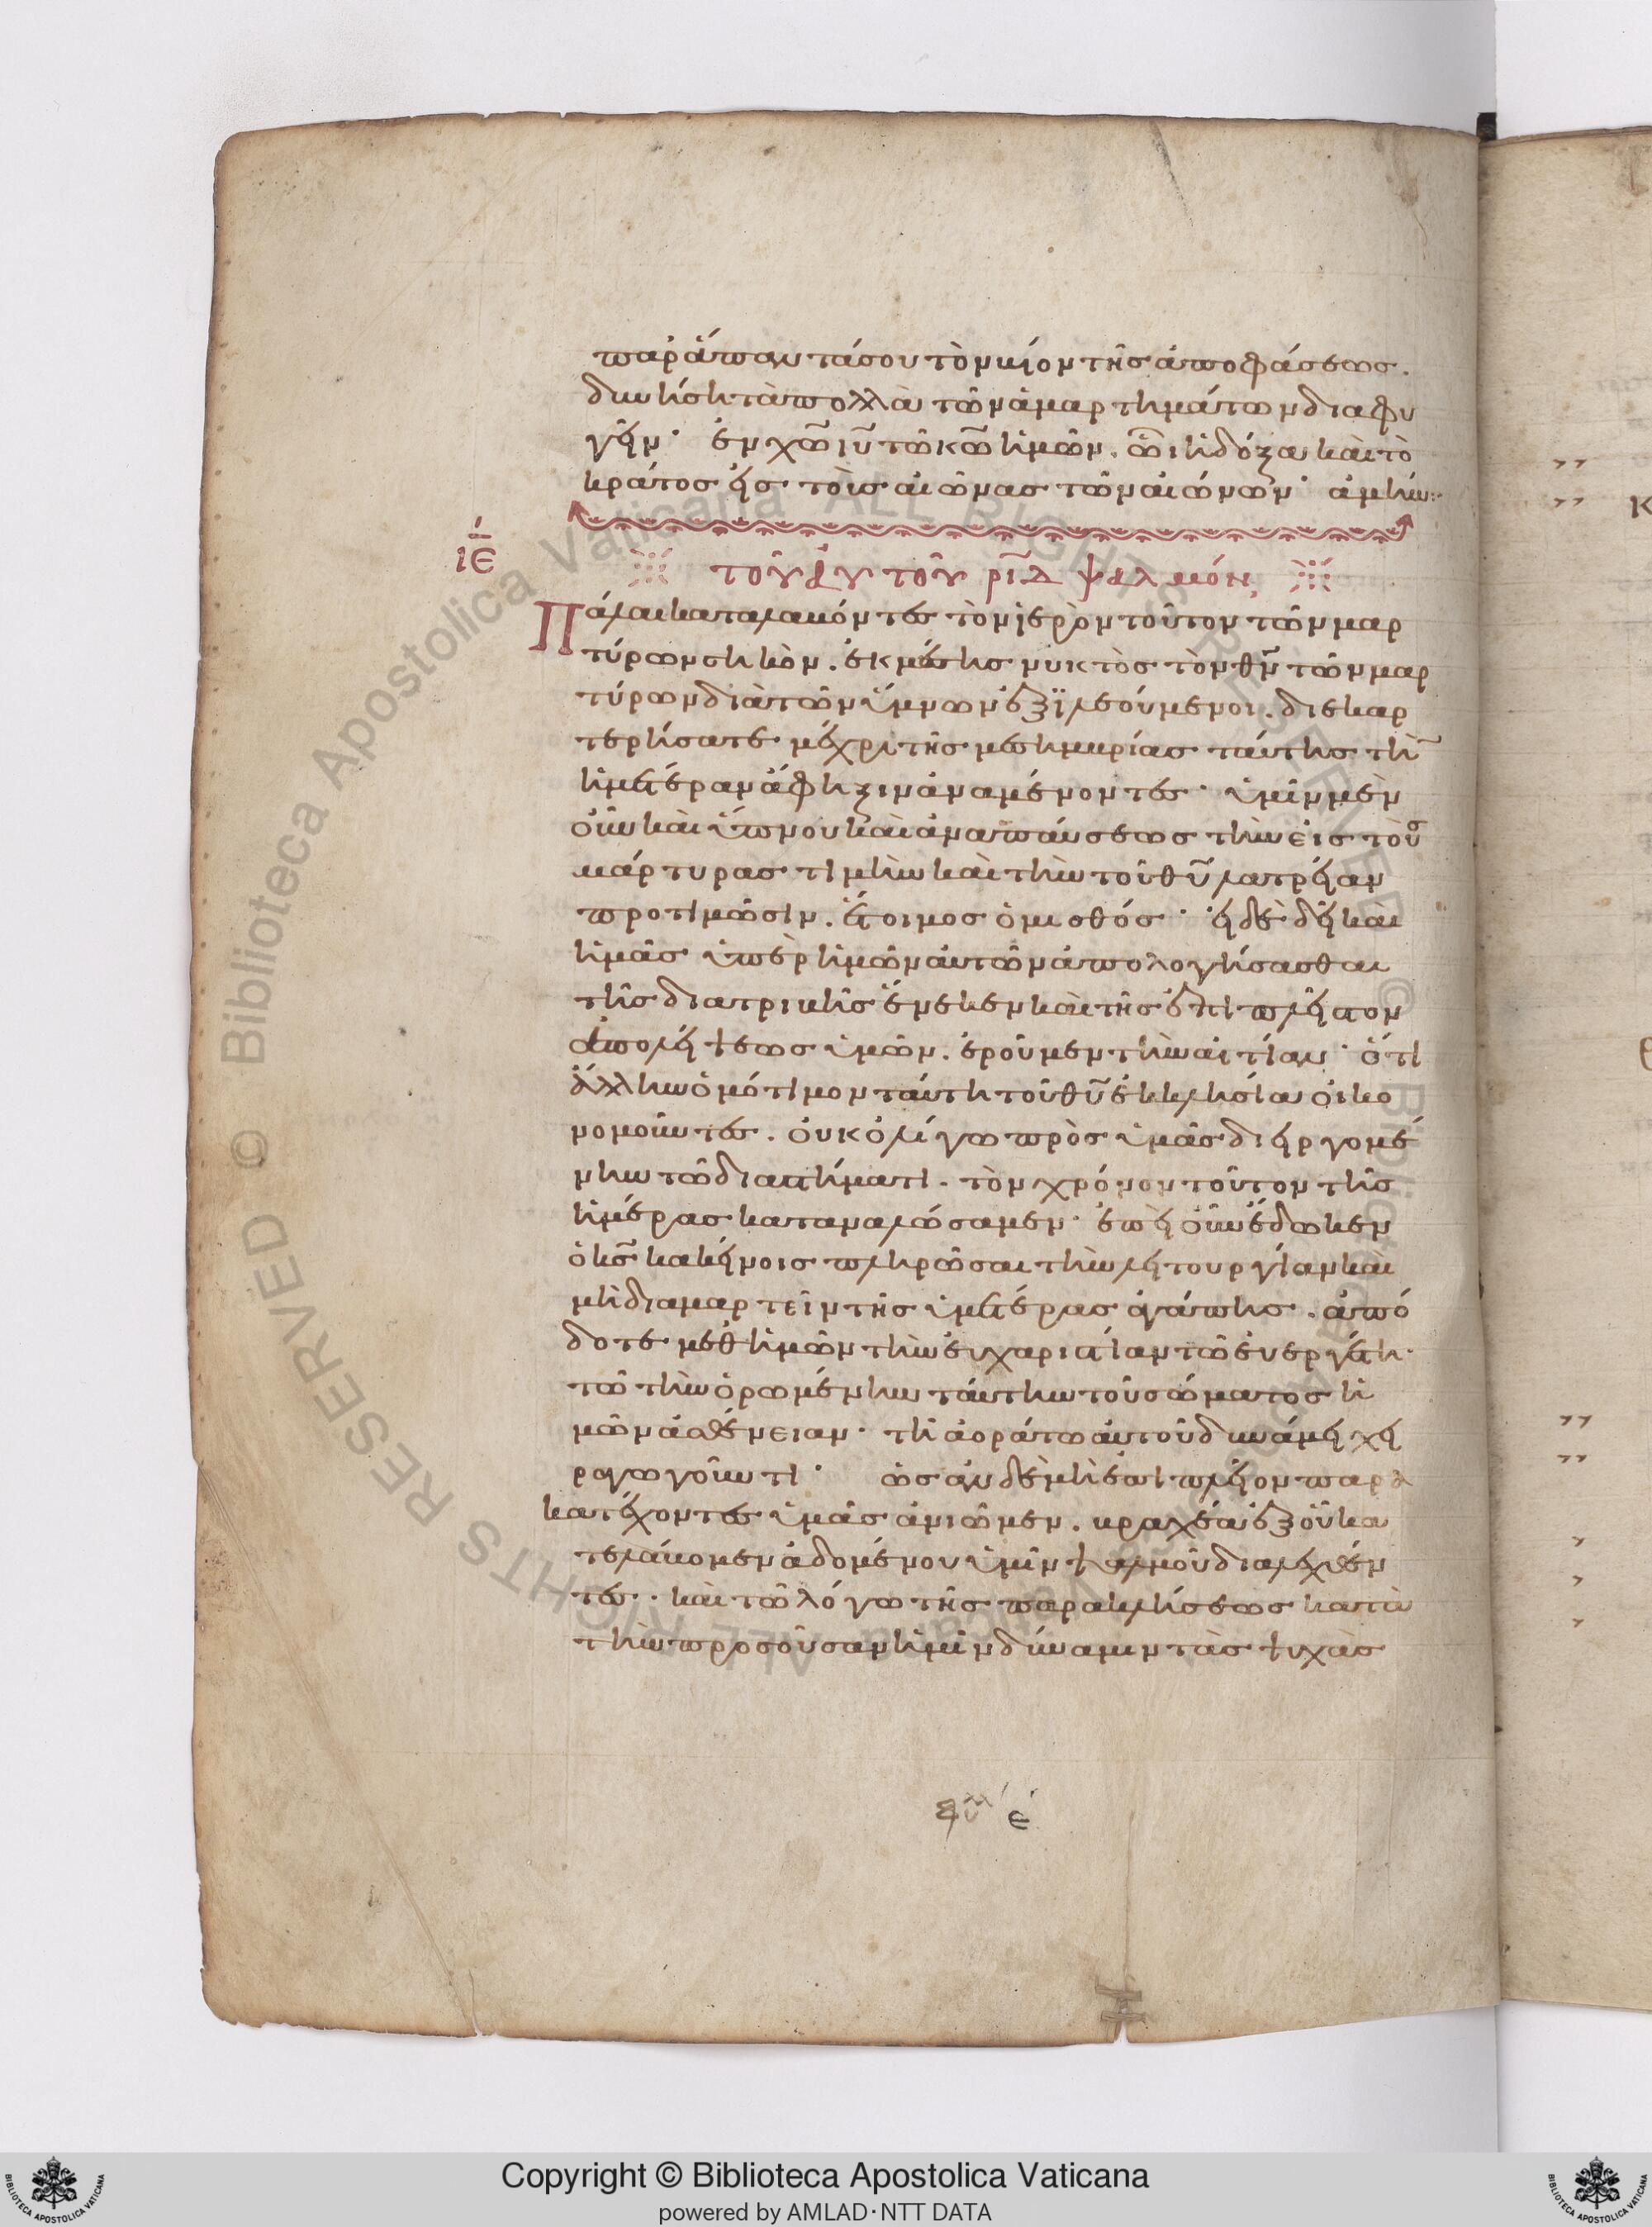 παρ' ἅπαντά σου τὸν βίον τῆς ἀποφάσεως.
δυνήση τὰ πολλὰ τῶν ἁμαρτημάτων διαφυ
γεῖν· ἐν χω ιυ τῶ κω ἡμῶν. ὧι ἡ δόξα καὶ τὸ
κράτος εἰς τοὺς αἰῶνας τῶν αἰώνων· ἀμήν:
ιε
τοῦ αυτοῦ ριδ ψαλμόν
Πάλαι καταλαβόντες τὸν ἱερὸν τοῦτον τῶν μαρ
τύρων σηκὸν. ἐκ μέσης νυκτὸς τὸν θν τῶν μαρ
τύρων διὰ τῶν ὕμνων ἐξϊλεούμενοι. διεκαρ
τερήσατε μέχρι τῆς μεσημβρίας ταύτης τὴ
ἡμετέραν ἄφηξιν ἀναμένοντες· ὑμῖν μὲν
οὖν καὶ ὕπνου καὶ ἀναπαύσεως τὴν εἰς τοὺς
μάρτυρας τιμὴν καὶ τὴν τοῦ θυ λατρείαν
προτιμῶσιν. ἕτοιμος ὁ μισθός· εἰ δὲ δεῖ καὶ
ἡμᾶς ὑπὲρ ἡμῶν αὐτῶν ἀπολογήσασθαι
τῆς διατριβῆς ἕνεκεν καὶ τῆς ἐπὶ πλεῖστον
ἀπολείψεως ὑμῶν. ἐροῦμεν τὴν αἰτίαν· ὅτι
ἄλλην ὁμότιμον ταύτη τοῦ θυ ἐκκλησίαν οἰκο
νομοῦντες. οὐκ ὀλίγω πρὸς ὑμᾶς διειργομέ
νην τῶ διαστήματι. τὸν χρόνον τοῦτον τῆς
ἡμέρας καταναλώσαμεν· ἐπεὶ οὖν ἔδωκεν
ὁ κς κακείνοις πληρῶσαι τὴν λειτουργίαν καὶ
μὴ διαμαρτεῖν τῆς ὑμετέρας ἀγάπης. ἀπό
δοτε μεθ ἡμῶν τὴν εὐχαριστίαν τῶ εὐεργέτη·
τῶ τὴν ὁρωμένην ταύτην τοῦ σώματος ἡ
μῶν ἀσθένειαν· τῆ ἀοράτω αὐτοῦ δυνάμει χει
ραγωγοῦντι· ὡς ἂν δὲ μὴ ἐπὶ πλεῖον παρα
κατέχοντες ὑμᾶς ἀνιῶμεν. βραχέα ἐξ οὗ κα
τελάβομεν ἀδομένου ὑμῖν ψαλμοῦ διαλεχθέν
τες. καὶ τῶ λόγω τῆς παρακλήσεως κατὰ
τὴν προσοῦσαν ἡμῖν δύναμιν τὰς ψυχὰς
Copyright © Biblioteca Apostolica Vaticana
powered by AMLAD·NTT DATA